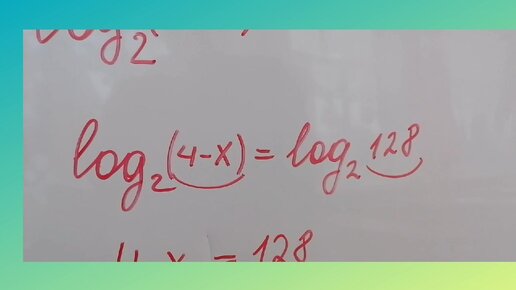 log₂(
log₂(4-x) = log₂128
4-x = 128